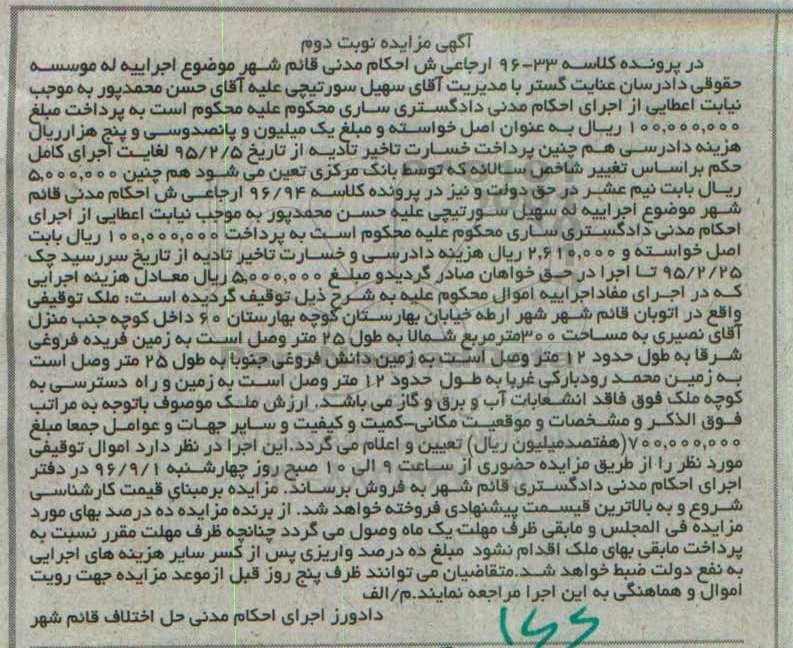 آگهی مزایده نوبت دوم
در پرونده کلاسه ۳۳-۹۶ ارجاعی ش احکام مدنی قائم شهر موضوع اجراییه له موسسه
حقوقی دادرسان عنایت گستر با مدیریت آقای سهیل سورتیچی علیه آقای حسن محمدپور به موجب
نیابت اعطایی از اجرای احکام مدنی دادگستری ساری محکوم علیه محکوم است به پرداخت مبلغ
۱۰۰,۰۰۰,۰۰۰ ریال به عنوان اصل خواسته و مبلغ یک میلیون و پانصدوسی و پنج هزارریال
هزینه دادرسی هم چنین پرداخت خسارت تاخیر تادیه از تاریخ ۹۵/۲/۵ لغایت اجرای کامل
حکم براساس تغییر شاخص سالانه که توسط بانک مرکزی تعین می شود هم چنین ۵,۰۰۰,۰۰۰
ریال بابت نیم عشر در حق دولت و نیز در پرونده کلاسه ۹۶/۹۴ ارجاعی ش احکام مدنی قائم
شهر موضوع اجراییه له سهیل سورتیچی علیه حسن محمدپور به موجب نیابت اعطایی از اجرای
احکام مدنی دادگستری ساری محکوم علیه محکوم است به پرداخت ۱۰۰,۰۰۰,۰۰۰ ریال بابت
اصل خواسته و ۲,۶۱۰,۰۰۰ ریال هزینه دادرسی و خسارت تاخیر تادیه از تاریخ سررسید چک
۹۵/۲/۲۵ تا اجرا در حق خواهان صادر گردیدو مبلغ ۵,۰۰۰,۰۰۰ ریال معادل هزینه اجرایی
که در اجرای مفاداجراییه اموال محکوم علیه به شرح ذیل توقیف گردیده است: ملک توقیفی
واقع در اتوبان قائم شهر شهر ارطه خیابان بهارستان کوچه بهارستان ۶۰ داخل کوچه جنب منزل
آقای نصیری به مساحت ۳۰۰مترمربع شمالا به طول ۲۵ متر وصل است به زمین فریده فروغی
شرقا به طول حدود ۱۲ متر وصل است به زمین دانش فروغی جنوبا به طول ۲۵ متر وصل است
به زمین محمد رودبارکی غربا به طول حدود ۱۲ متر وصل است به زمین و راه دسترسی به
کوچه ملک فوق فاقد انشعابات آب و برق و گاز می باشد. ارزش ملک موصوف باتوجه به مراتب
فوق الذکر و مشخصات و موقعیت مکانی-کمیت و کیفیت و سایر جهات و عوامل جمعا مبلغ
۷۰۰,۰۰۰,۰۰۰(هفتصدمیلیون ریال) تعیین و اعلام می گردد.این اجرا در نظر دارد اموال توقیفی
مورد نظر را از طریق مزایده حضوری از ساعت ۹ الی ۱۰ صبح روز چهارشنبه ۹۶/۹/۱ در دفتر
اجرای احکام مدنی دادگستری قائم شهر به فروش برساند. مزایده برمبنای قیمت کارشناسی
شروع و به بالاترین قیسمت پیشنهادی فروخته خواهد شد. از برنده مزایده ده درصد بهای مورد
مزایده فی المجلس و مابقی ظرف مهلت یک ماه وصول می گردد چنانچه ظرف مهلت مقرر نسبت به
پرداخت مابقی بهای ملک اقدام نشود مبلغ ده درصد واریزی پس از کسر سایر هزینه های اجرایی
به نفع دولت ضبط خواهد شد.متقاضیان می توانند ظرف پنج روز قبل ازموعد مزایده جهت رویت
اموال و هماهنگی به این اجرا مراجعه نمایند.م/الف
دادورز اجرای احکام مدنی حل اختلاف قائم شهر